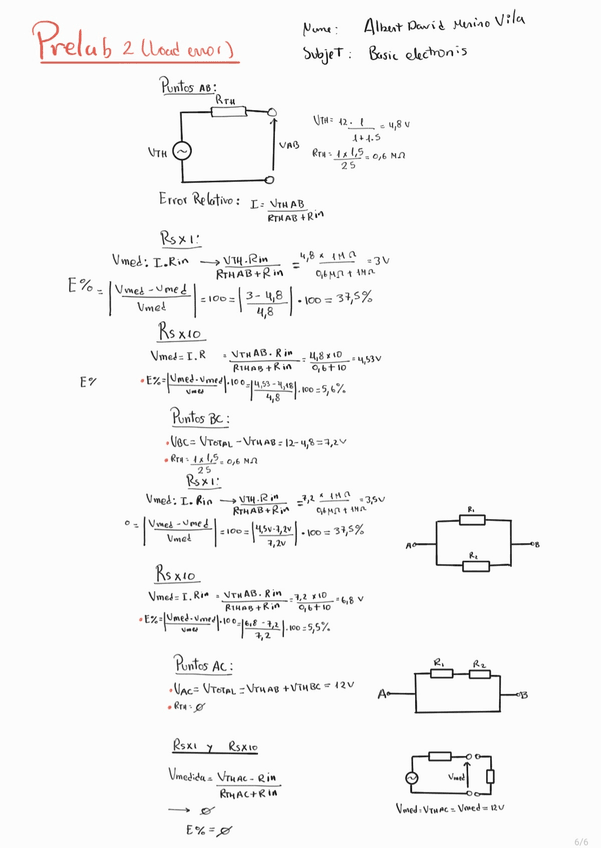 Prelab 2 (Load error)
Name: Albert David Merino Vila
Subject: Basic electronis
Puntos AB:
RTH
VTH
VAB
VTH = 12 · 1 / 1+1.5 = 4,8 V
RTH = 1 x 1,5 / 25 = 0,6 MΩ
Error Relativo: I = VTHAB / RTHAB + Rin
Rsx1:
Vmed: I.Rin → VTH.Rin / RTHAB + Rin = 4,8 x 1MΩ / 0,6MΩ + 1MΩ = 3V
E% = |Vmed - Vmed / Vmed| = 100 = |3 - 4,8 / 4,8| · 100 = 37,5%
Rsx10
Vmed = I.R = VTHAB . Rin / RTHAB + Rin = 4,8 x 10 / 0,6 + 10 = 4,53V
E%
• E% = |Vmed - Vmed / Vmed| · 100 = |4,53 - 4,48 / 4,8| · 100 = 5,6%
Puntos BC:
• VBC = VTOTAL - VTHAB = 12 - 4,8 = 7,2V
• RTH = 1 x 1,5 / 25 = 0,6 MΩ
Rsx1:
Vmed: I.Rin → VTH.Rin / RTHAB + Rin = 7,2 x 1MΩ / 0,6MΩ + 1MΩ = 3,5V
° = |Vmed - Vmed / Vmed| = 100 = |4,5V - 7,2V / 7,2V| · 100 = 37,5%
R1
A
B
R2
Rsx10
Vmed = I.Rin = VTHAB . Rin / RTHAB + Rin = 7,2 x 10 / 0,6 + 10 = 6,8 V
• E% = |Vmed - Vmed / Vmed| · 100 = |6,8 - 7,2 / 7,2| · 100 = 5,5%
Puntos AC:
• VAC = VTOTAL = VTHAB + VTHBC = 12V
• RTH = ∅
R1 R2
A
B
Rsx1 y Rsx10
Vmedida = VTHAC - Rin / RTHAC + Rin
→ ∅
E% = ∅
Vmed
Vmed = VTHAC = Vmed = 12V
6/6